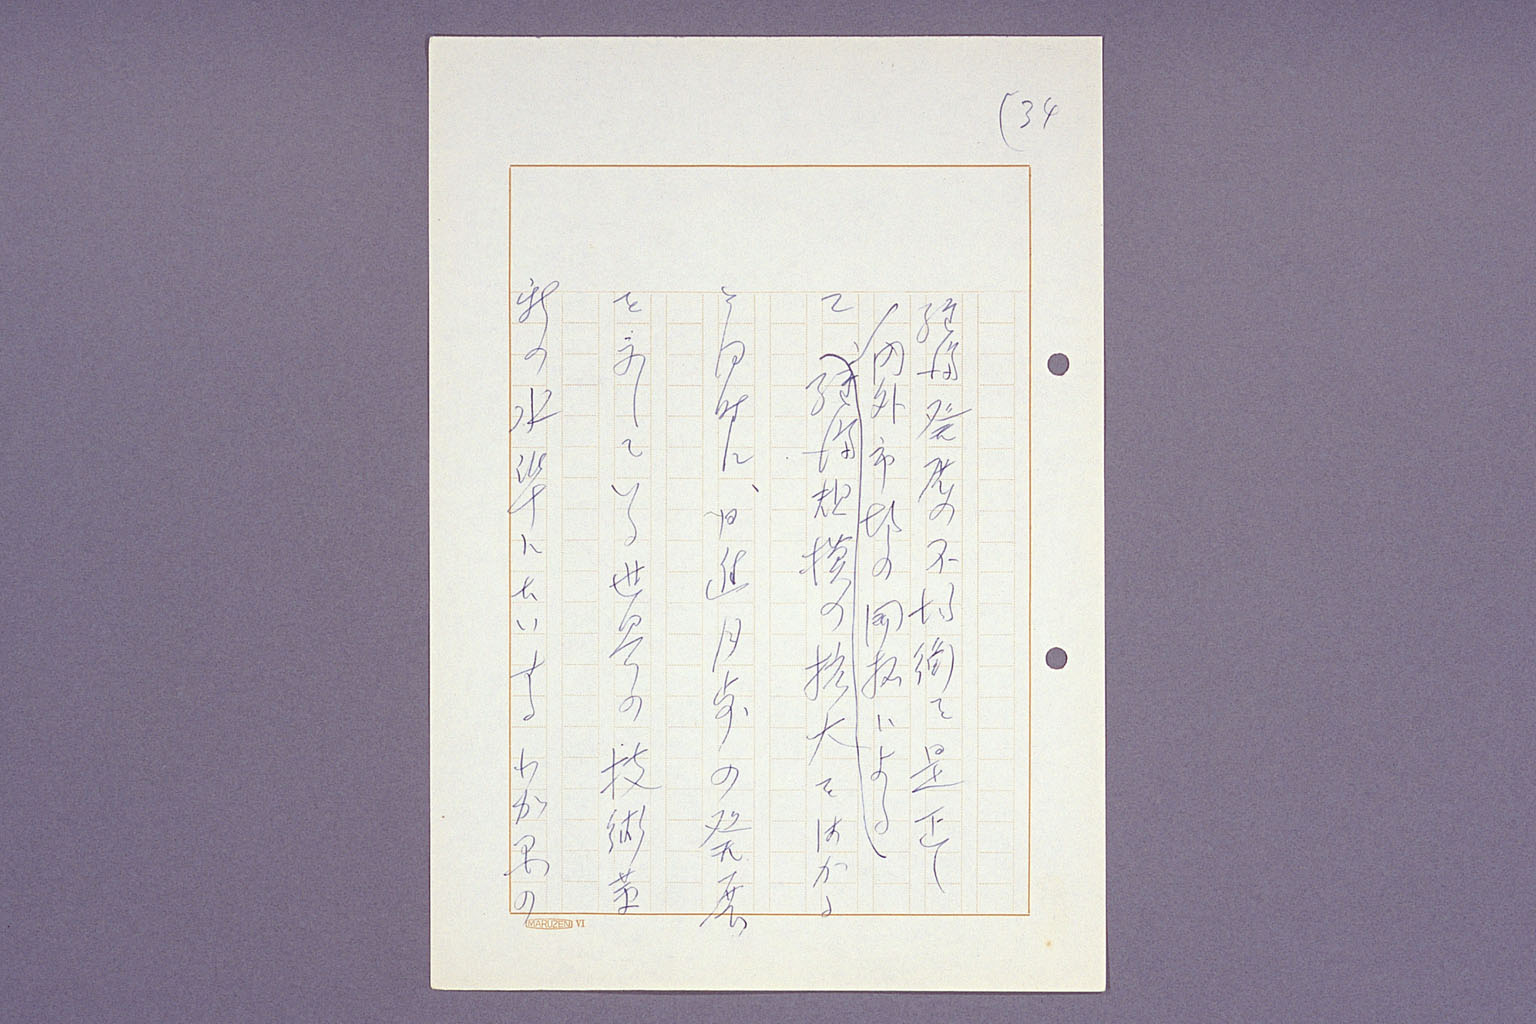 (34
経済発展の不均衡を是正し
(内外市場の開拓による
て 経済規模の拡大をはかる
と同時に、日進月歩の発展
を示している世界の技術革
新の水準にたいするわが国の
MARUZEN VI